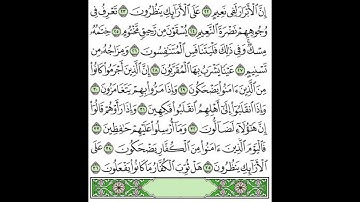 إِنَّ ٱلْأَبْرَارَ لَفِى نَعِيمٍ ٢٢ عَلَى ٱلْأَرَآئِكِ يَنظُرُونَ ٢٣ تَعْرِفُ فِى
وُجُوهِهِمْ نَضْرَةَ ٱلنَّعِيمِ ٢٤ يُسْقَوْنَ مِن رَّحِيقٍ مَّخْتُومٍ ٢٥ خِتَٰمُهُۥ
مِسْكٌ وَفِى ذَٰلِكَ فَلْيَتَنَافَسِ ٱلْمُتَنَٰفِسُونَ ٢٦ وَمِزَاجُهُۥ مِن
تَسْنِيمٍ ٢٧ عَيْنًا يَشْرَبُ بِهَا ٱلْمُقَرَّبُونَ ٢٨ إِنَّ ٱلَّذِينَ أَجْرَمُوا۟ كَانُوا۟
مِنَ ٱلَّذِينَ ءَامَنُوا۟ يَضْحَكُونَ ٢٩ وَإِذَا مَرُّوا۟ بِهِمْ يَتَغَامَزُونَ ٣٠
وَإِذَا ٱنقَلَبُوٓا۟ إِلَىٰٓ أَهْلِهِمُ ٱنقَلَبُوا۟ فَكِهِينَ ٣١ وَإِذَا رَأَوْهُمْ قَالُوٓا۟
إِنَّ هَٰٓؤُلَآءِ لَضَآلُّونَ ٣٢ وَمَآ أُرْسِلُوا۟ عَلَيْهِمْ حَٰفِظِينَ ٣٣
فَٱلْيَوْمَ ٱلَّذِينَ ءَامَنُوا۟ مِنَ ٱلْكُفَّارِ يَضْحَكُونَ ٣٤ عَلَى
ٱلْأَرَآئِكِ يَنظُرُونَ ٣٥ هَلْ ثُوِّبَ ٱلْكُفَّارُ مَا كَانُوا۟ يَفْعَلُونَ ٣٦